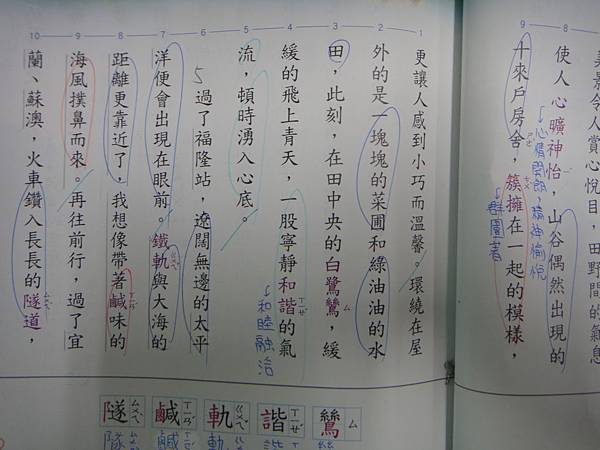 美景令人賞心悅目，田野間的氣息
8
使人心曠神怡，山谷偶然出現的
心情開朗，精神愉悅
9
十來戶房舍，簇擁在一起的模樣，
ㄕㄜˋ
ㄘㄨˋ
群圍著
1
更讓人感到小巧而溫馨。環繞在屋
2
外的是一塊塊的菜圃和綠油油的水
3
田，此刻，在田中央的白鷺鷥，緩
ㄙ
4
緩的飛上青天，一股寧靜和諧的氣
ㄒㄧㄝˊ
和睦融洽
5
流，頓時湧入心底。
6
5
過了福隆站，遼闊無邊的太平
7
洋便會出現在眼前。鐵軌與大海的
ㄍㄨㄟˇ
8
距離更靠近了，我想像帶著鹹味的
ㄒㄧㄢˊ
9
海風撲鼻而來。再往前行，過了宜
10
蘭、蘇澳，火車鑽入長長的隧道，
ㄙㄨㄟˋ
鷥 ㄙ
諧 ㄒㄧㄝˊ
軌 ㄍㄨㄟˇ
鹹 ㄒㄧㄢˊ
隧 ㄙㄨㄟˋ